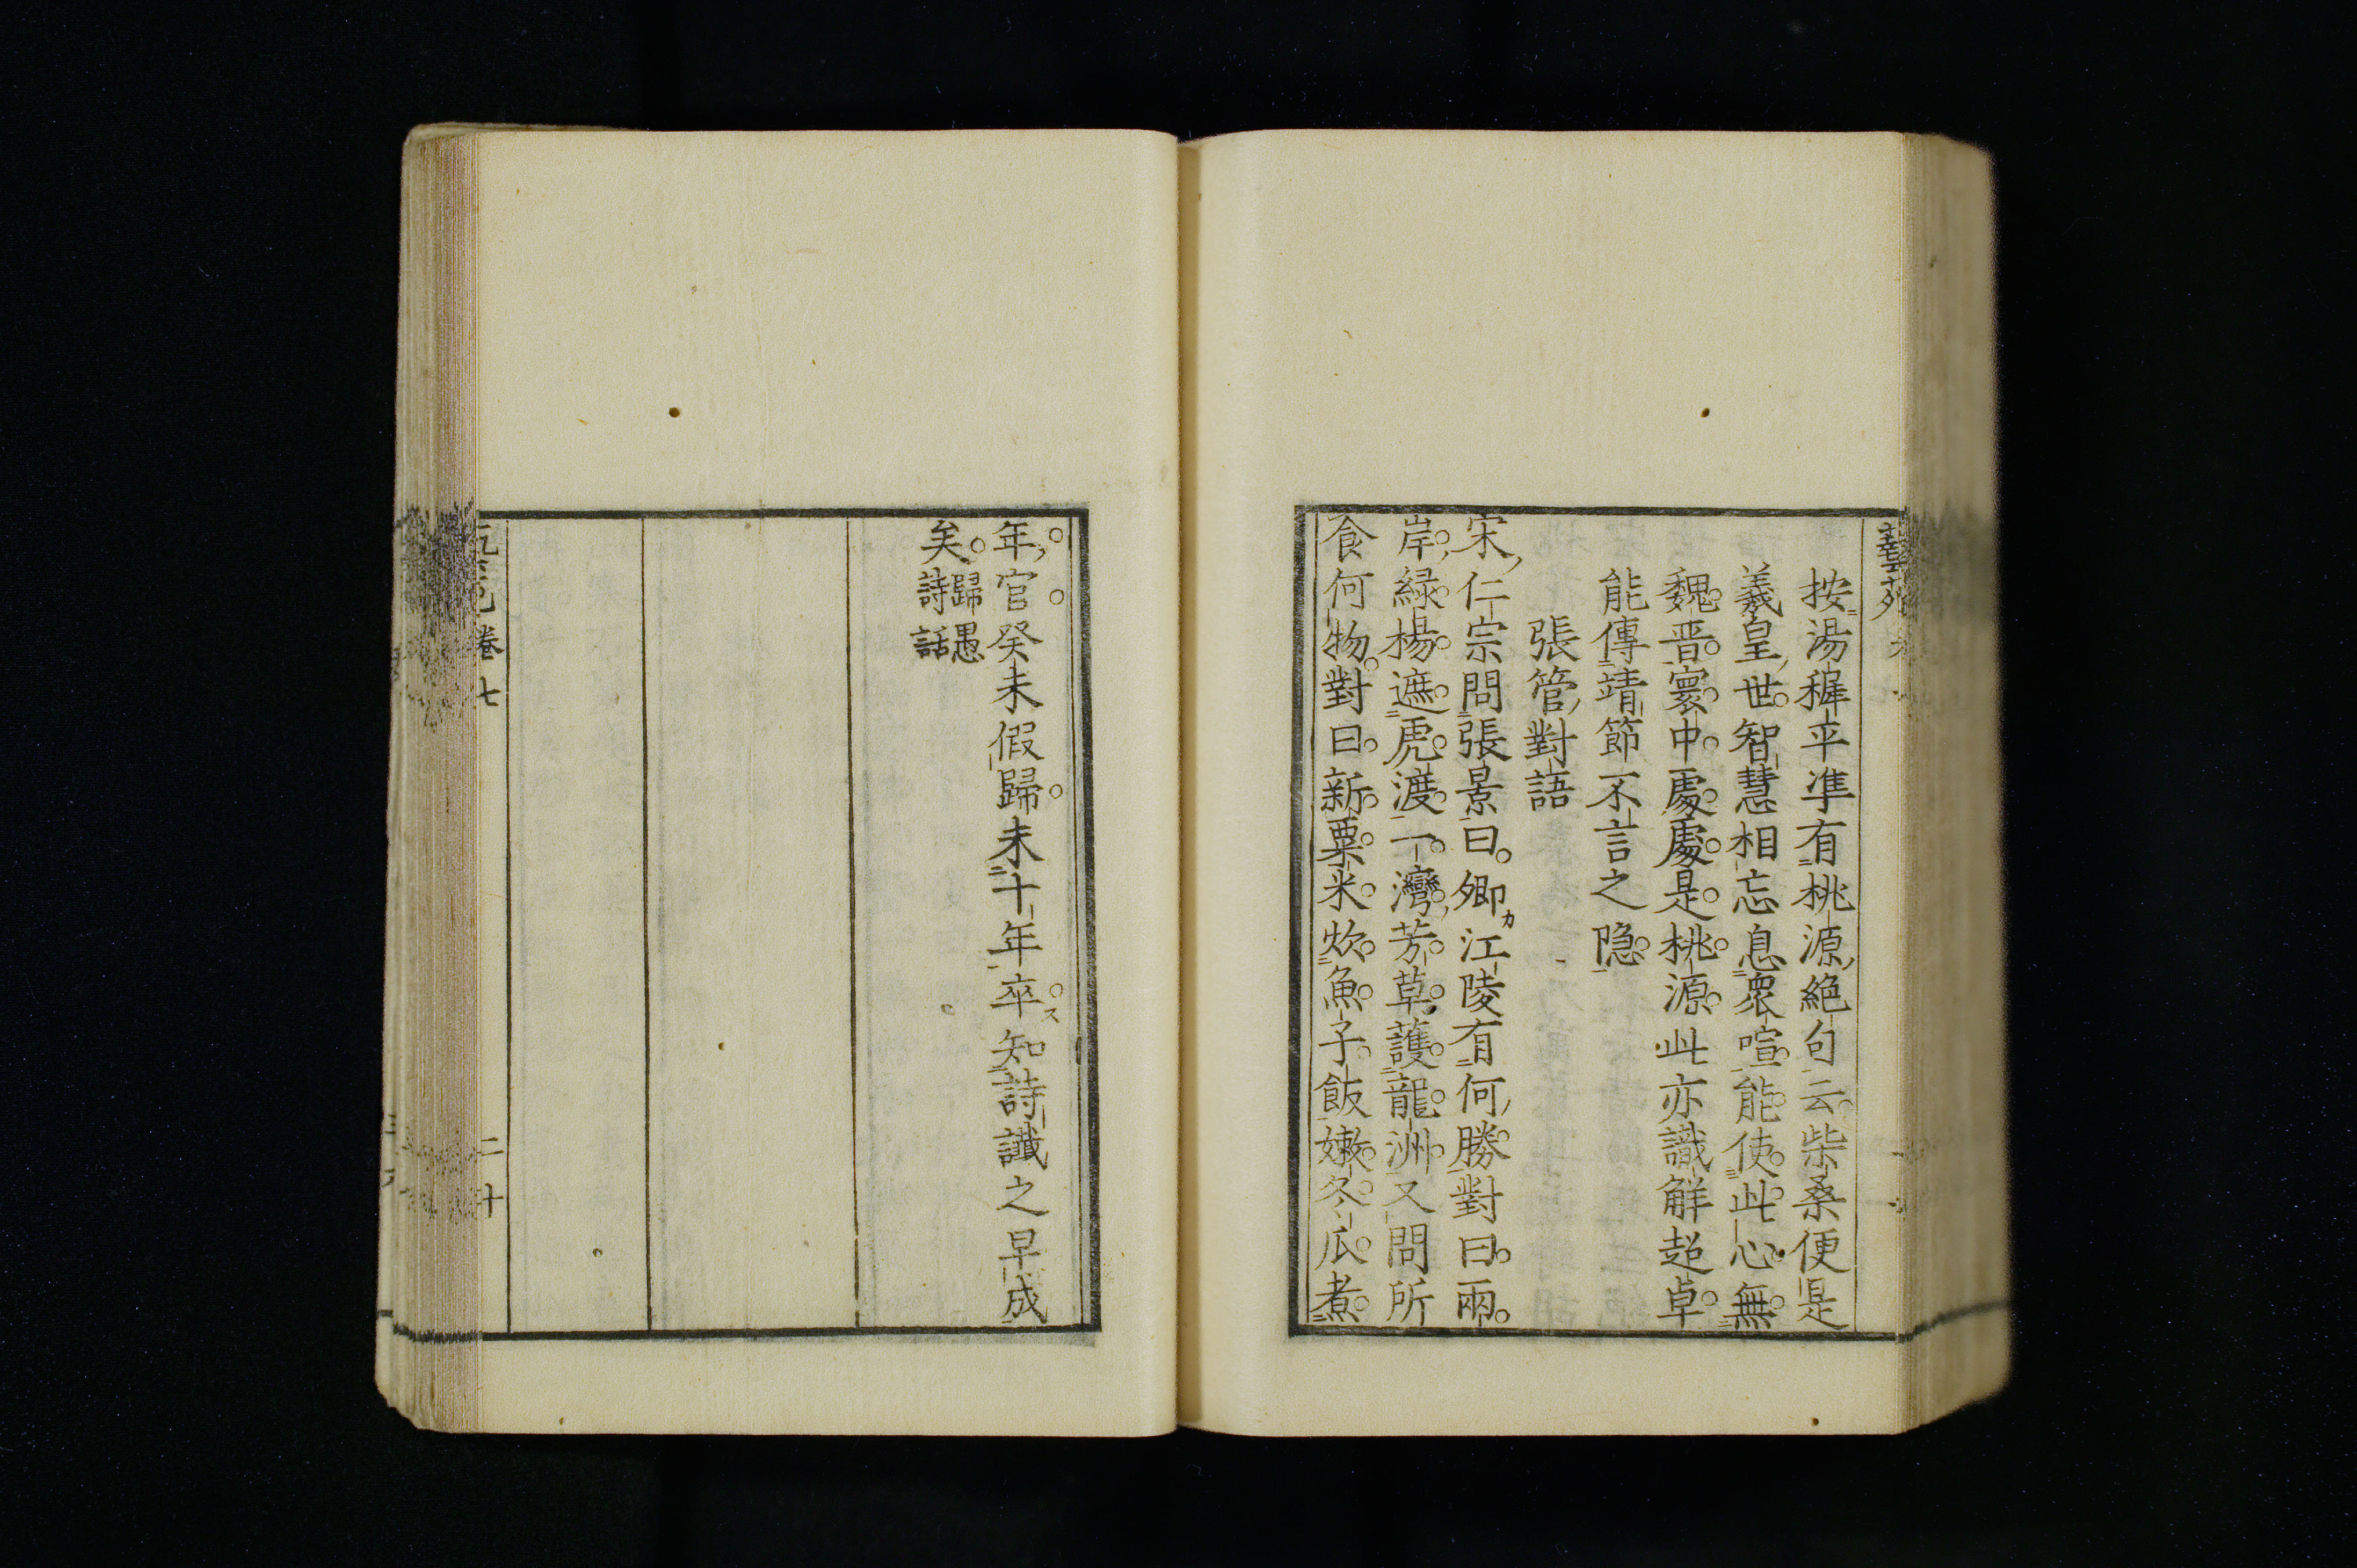 按湯穉平準有桃源絕句云柴桑便是
羲皇世智慧相忘息衆喧能使此心無
魏晋寰中處處是桃源此亦識解超卓
能傳靖節不言之隠
張管對語
宋仁宗問張景曰卿カ江陵有何勝對曰兩
岸緑楊遮虎渡一灣芳草護龍洲又問所
食何物對曰新粟米炊魚子飯嫩冬瓜煮
年官癸未假歸未十年卒ス知詩讖之早成
矣歸愚
詩話
卷七
二十